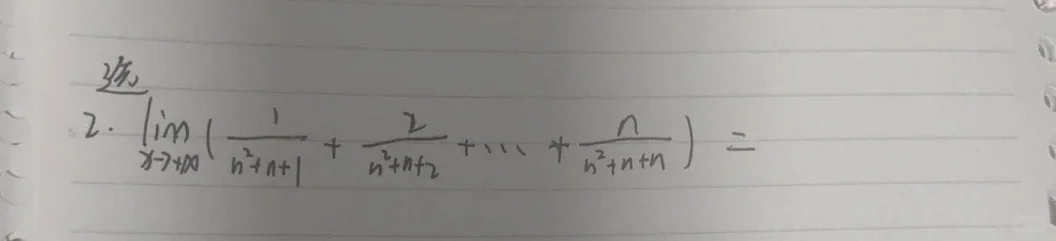 练
2. lim x→+∞ ( 1/(n²+n+1) + 2/(n²+n+2) + ... + n/(n²+n+n) ) =